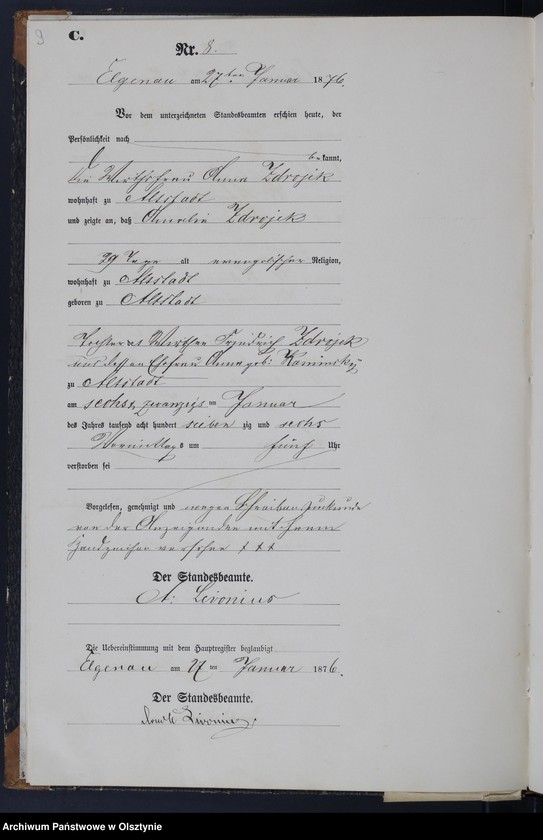 9
C.
Nr. 8.
Elgenau am 27ten Januar 1876.
Vor dem unterzeichneten Standesbeamten erschien heute, der
Persönlichkeit nach
bekannt,
die Wirthsfrau Anna Zdrojek
wohnhaft zu Altstadt
und zeigte an, daß Amalie Zdrojek
29 Tage alt evangelischer Religion,
wohnhaft zu Altstadt
geboren zu Altstadt
Tochter des Wirthen Friedrich Zdrojek
und dessen Ehefrau Anna geb: Kaminsky
zu Altstadt
am sechs & zwanzigsten Januar
des Jahres tausend acht hundert sieben zig und sechs
Vormittags um fünf Uhr
verstorben sei
Vorgelesen, genehmigt und wegen Schreibensunkunde
von der Anzeigenden mit ihrem
Handzeichen versehen + + +
Der Standesbeamte.
A. Livonius
Die Uebereinstimmung mit dem Hauptregister beglaubigt
Elgenau am 27ten Januar 1876.
Der Standesbeamte.
Livonius
Archiwum Państwowe w Olsztynie